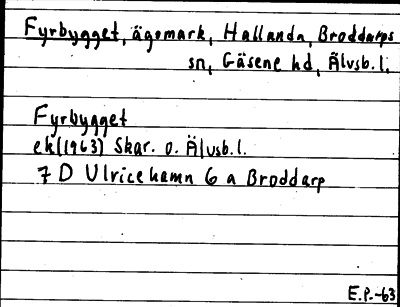 Fyrbygget, ägomark, Hallanda, Broddarps
sn, Gäsene hd, Älvsb. l.
Fyrbygget
ek (1963) Skar. o. Älvsb. l.
7 D Ulricehamn 6 a Broddarp
E.P.-63